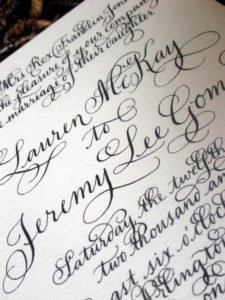 Mrs. Rex Franklin Jones
the pleasure of your company
marriage of their daughter
Lauren McKay
to
Jeremy Lee Gom
Saturday the twelfth
two thousand an
ast six o'clock
rlington